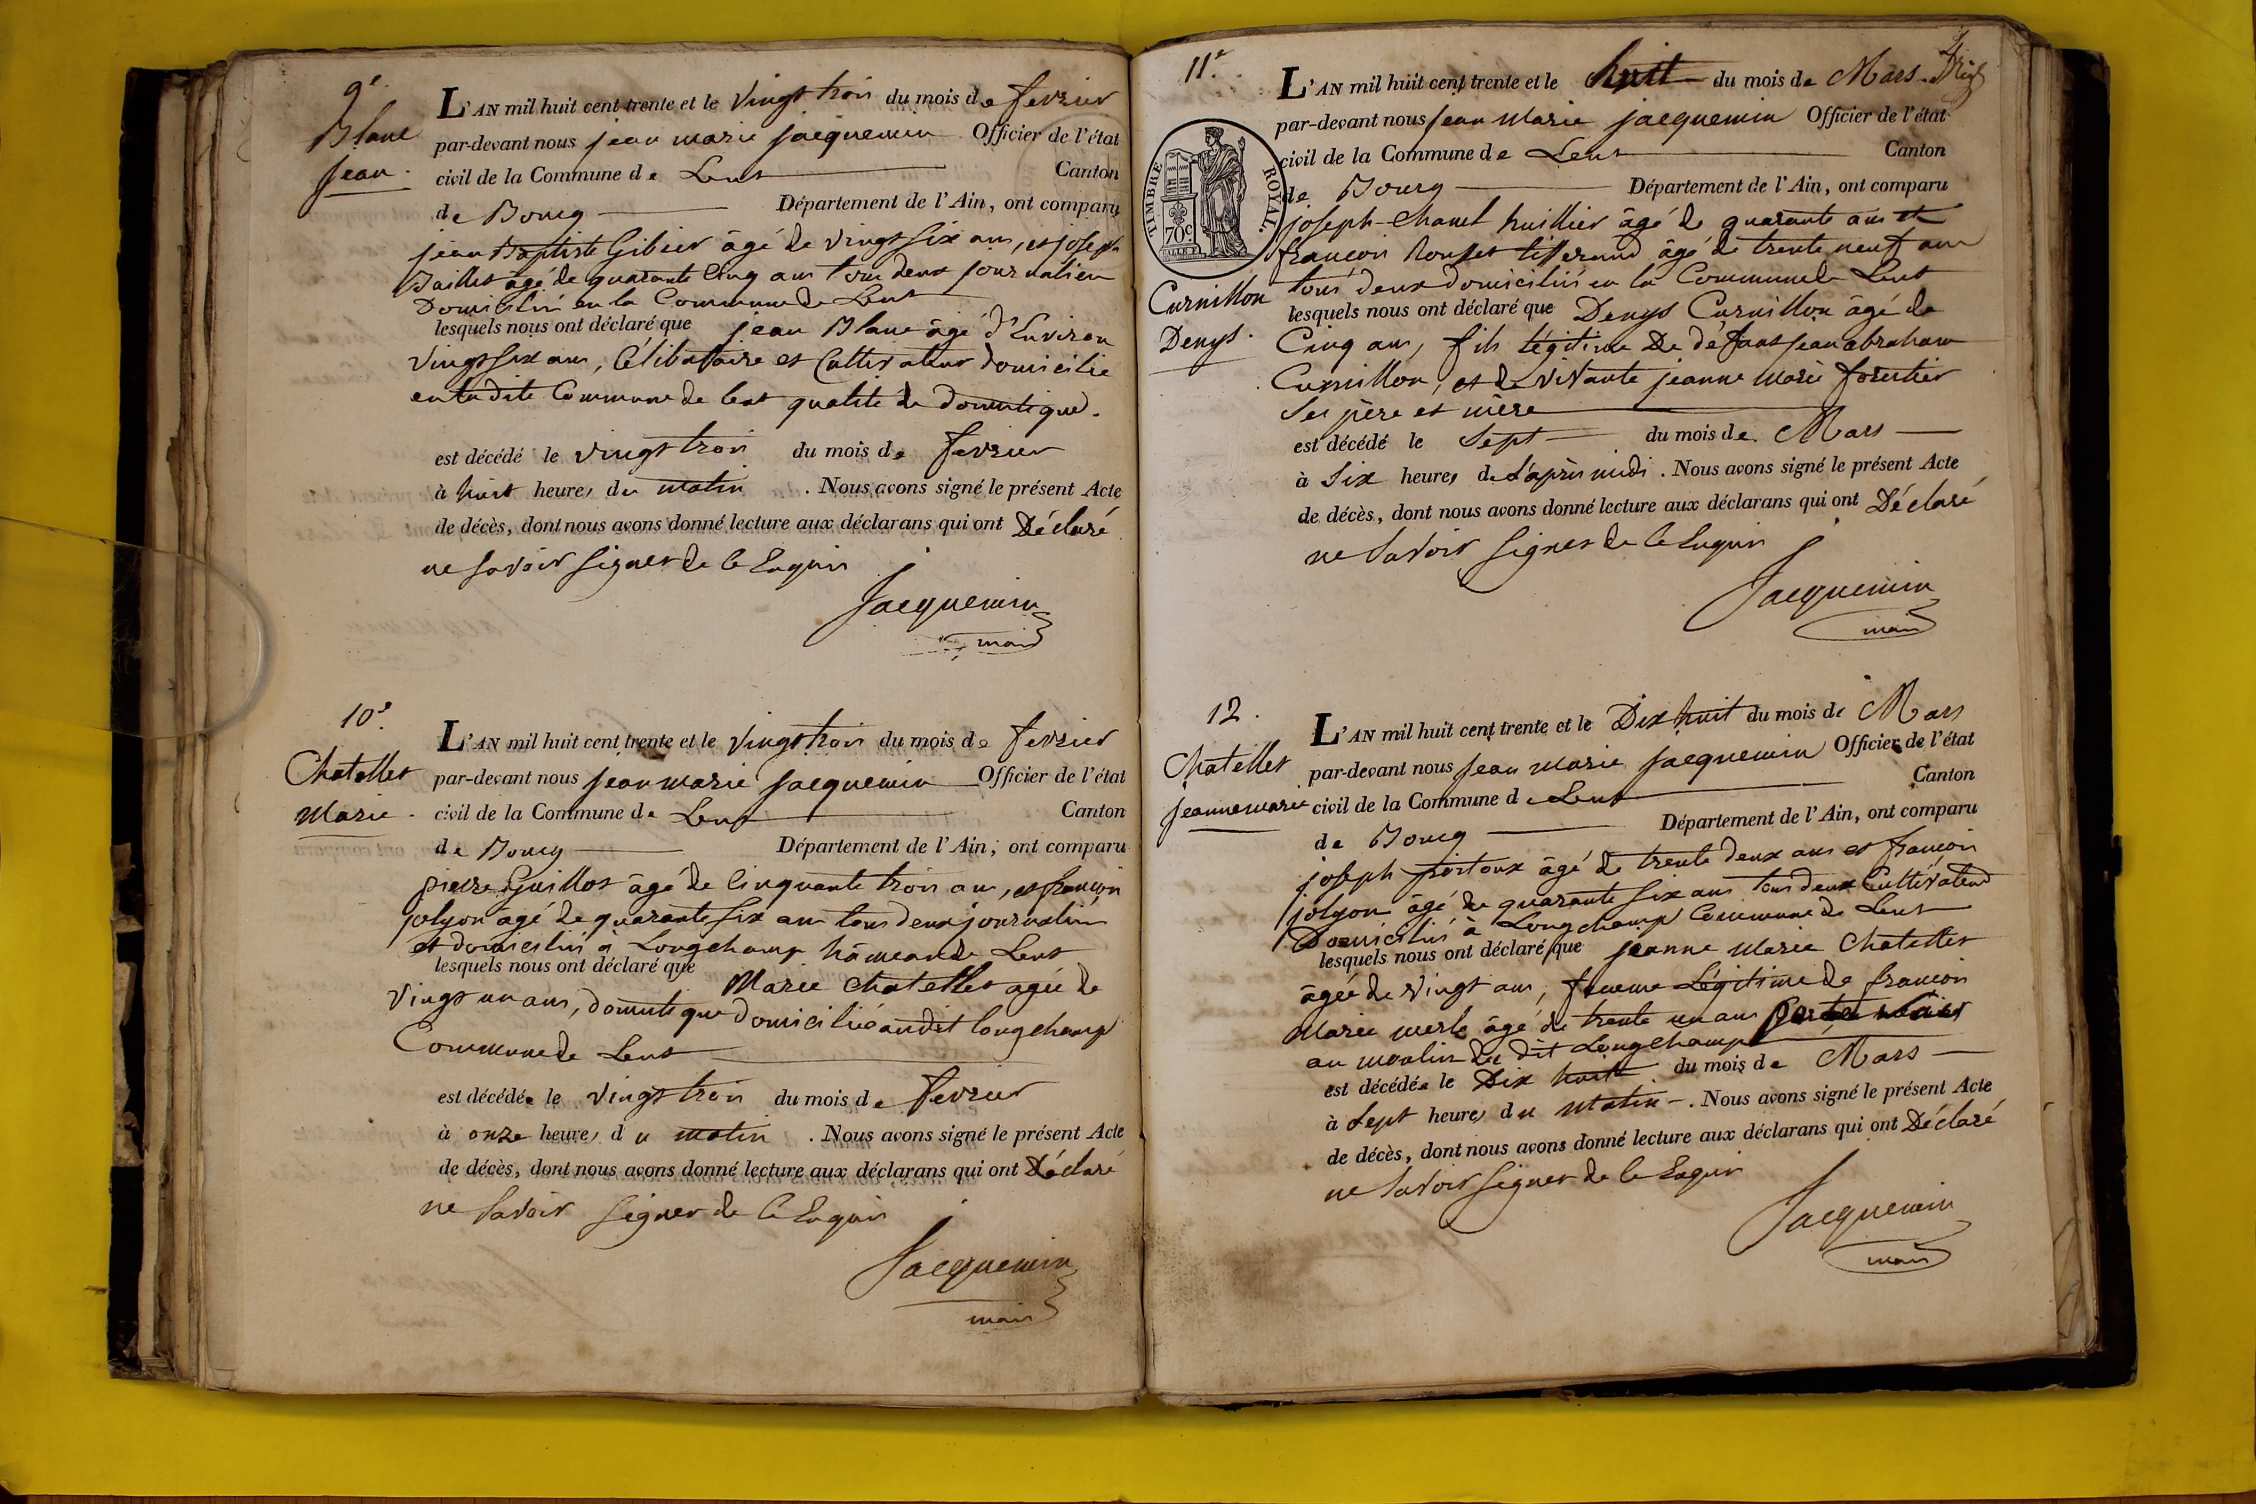 9e.
Blanc
jean.
L'AN mil huit cent trente et le vingt trois du mois de fevrier
par-devant nous jean marie jacquemin Officier de l'état
civil de la Commune de Lent Canton
de Bourg Département de l'Ain, ont comparu
jean Baptiste Gibier âgé de vingt six ans, et joseph
Baillet âgé de quarante cinq ans tous deux journalier
Domicilié en la Commune de Lent
lesquels nous ont déclaré que jean Blanc âgé d'Environ
vingt six ans, Célibataire et Cultivateur domicilié
en ladite Commune de lent qualité de domestique.
est décédé le vingt trois du mois de fevrier
à huit heures du matin. Nous avons signé le présent Acte
de décès, dont nous avons donné lecture aux déclarans qui ont Déclaré
ne savoir signer de ce Enquis
Jacquemin
maire
10e.
Chatellet
Marie.
L'AN mil huit cent trente et le vingt trois du mois de fevrier
par-devant nous jean marie jacquemin Officier de l'état
civil de la Commune de Lent Canton
de Bourg Département de l'Ain, ont comparu
pierre Guillot âgé de Cinquante trois ans, et françois
jolyon âgé de quarante six ans tous deux journalier
et domicilié à Longchamp hâmeau de Lent
lesquels nous ont déclaré que Marie Chatellet agée de
vingt un ans, domestique domicilié audit longchamp
Commune de Lent
est décédée le vingt trois du mois de fevrier
à onze heures du matin. Nous avons signé le présent Acte
de décès, dont nous avons donné lecture aux déclarans qui ont Déclaré
ne savoir signer de ce Enquis
Jacquemin
maire
11e.
TIMBRE ROYAL.
70c
Curnillon
Denys.
L'AN mil huit cent trente et le huit du mois de Mars
par-devant nous jean marie jacquemin Officier de l'état
civil de la Commune de Lent Canton
de Bourg Département de l'Ain, ont comparu
joseph Chanel huillier âgé de quarante ans et
françois tisserand âgé de trente neuf ans
tous deux domicilié en la Commune de Lent
lesquels nous ont déclaré que Denys Curnillon âgé de
Cinq ans, fils légitime De défunt jean abraham
Curnillon, et de vivante jeanne marie forestier
ses père et mère
est décédé le Sept du mois de Mars
à Six heures de l'après midi. Nous avons signé le présent Acte
de décès, dont nous avons donné lecture aux déclarans qui ont Déclaré
ne savoir signer de ce Enquis
Jacquemin
maire
12.
Chatellet
jeanne marie
L'AN mil huit cent trente et le Dix huit du mois de Mars
par-devant nous jean marie jacquemin Officier de l'état
civil de la Commune de Lent Canton
de Bourg Département de l'Ain, ont comparu
joseph âgé de trente deux ans et françois
jolyon âgé de quarante six ans tous deux Cultivateur
Domicilié à Longchamp Commune de Lent
lesquels nous ont déclaré que jeanne Marie Chatellet
âgée de vingt ans, femme Légitime de françois
Marie merle âgé de trente un ans
au moulin du dit Longchamp
est décédée le Dix huit du mois de Mars
à Sept heures du matin. Nous avons signé le présent Acte
de décès, dont nous avons donné lecture aux déclarans qui ont Déclaré
ne savoir signer de ce Enquis
Jacquemin
maire